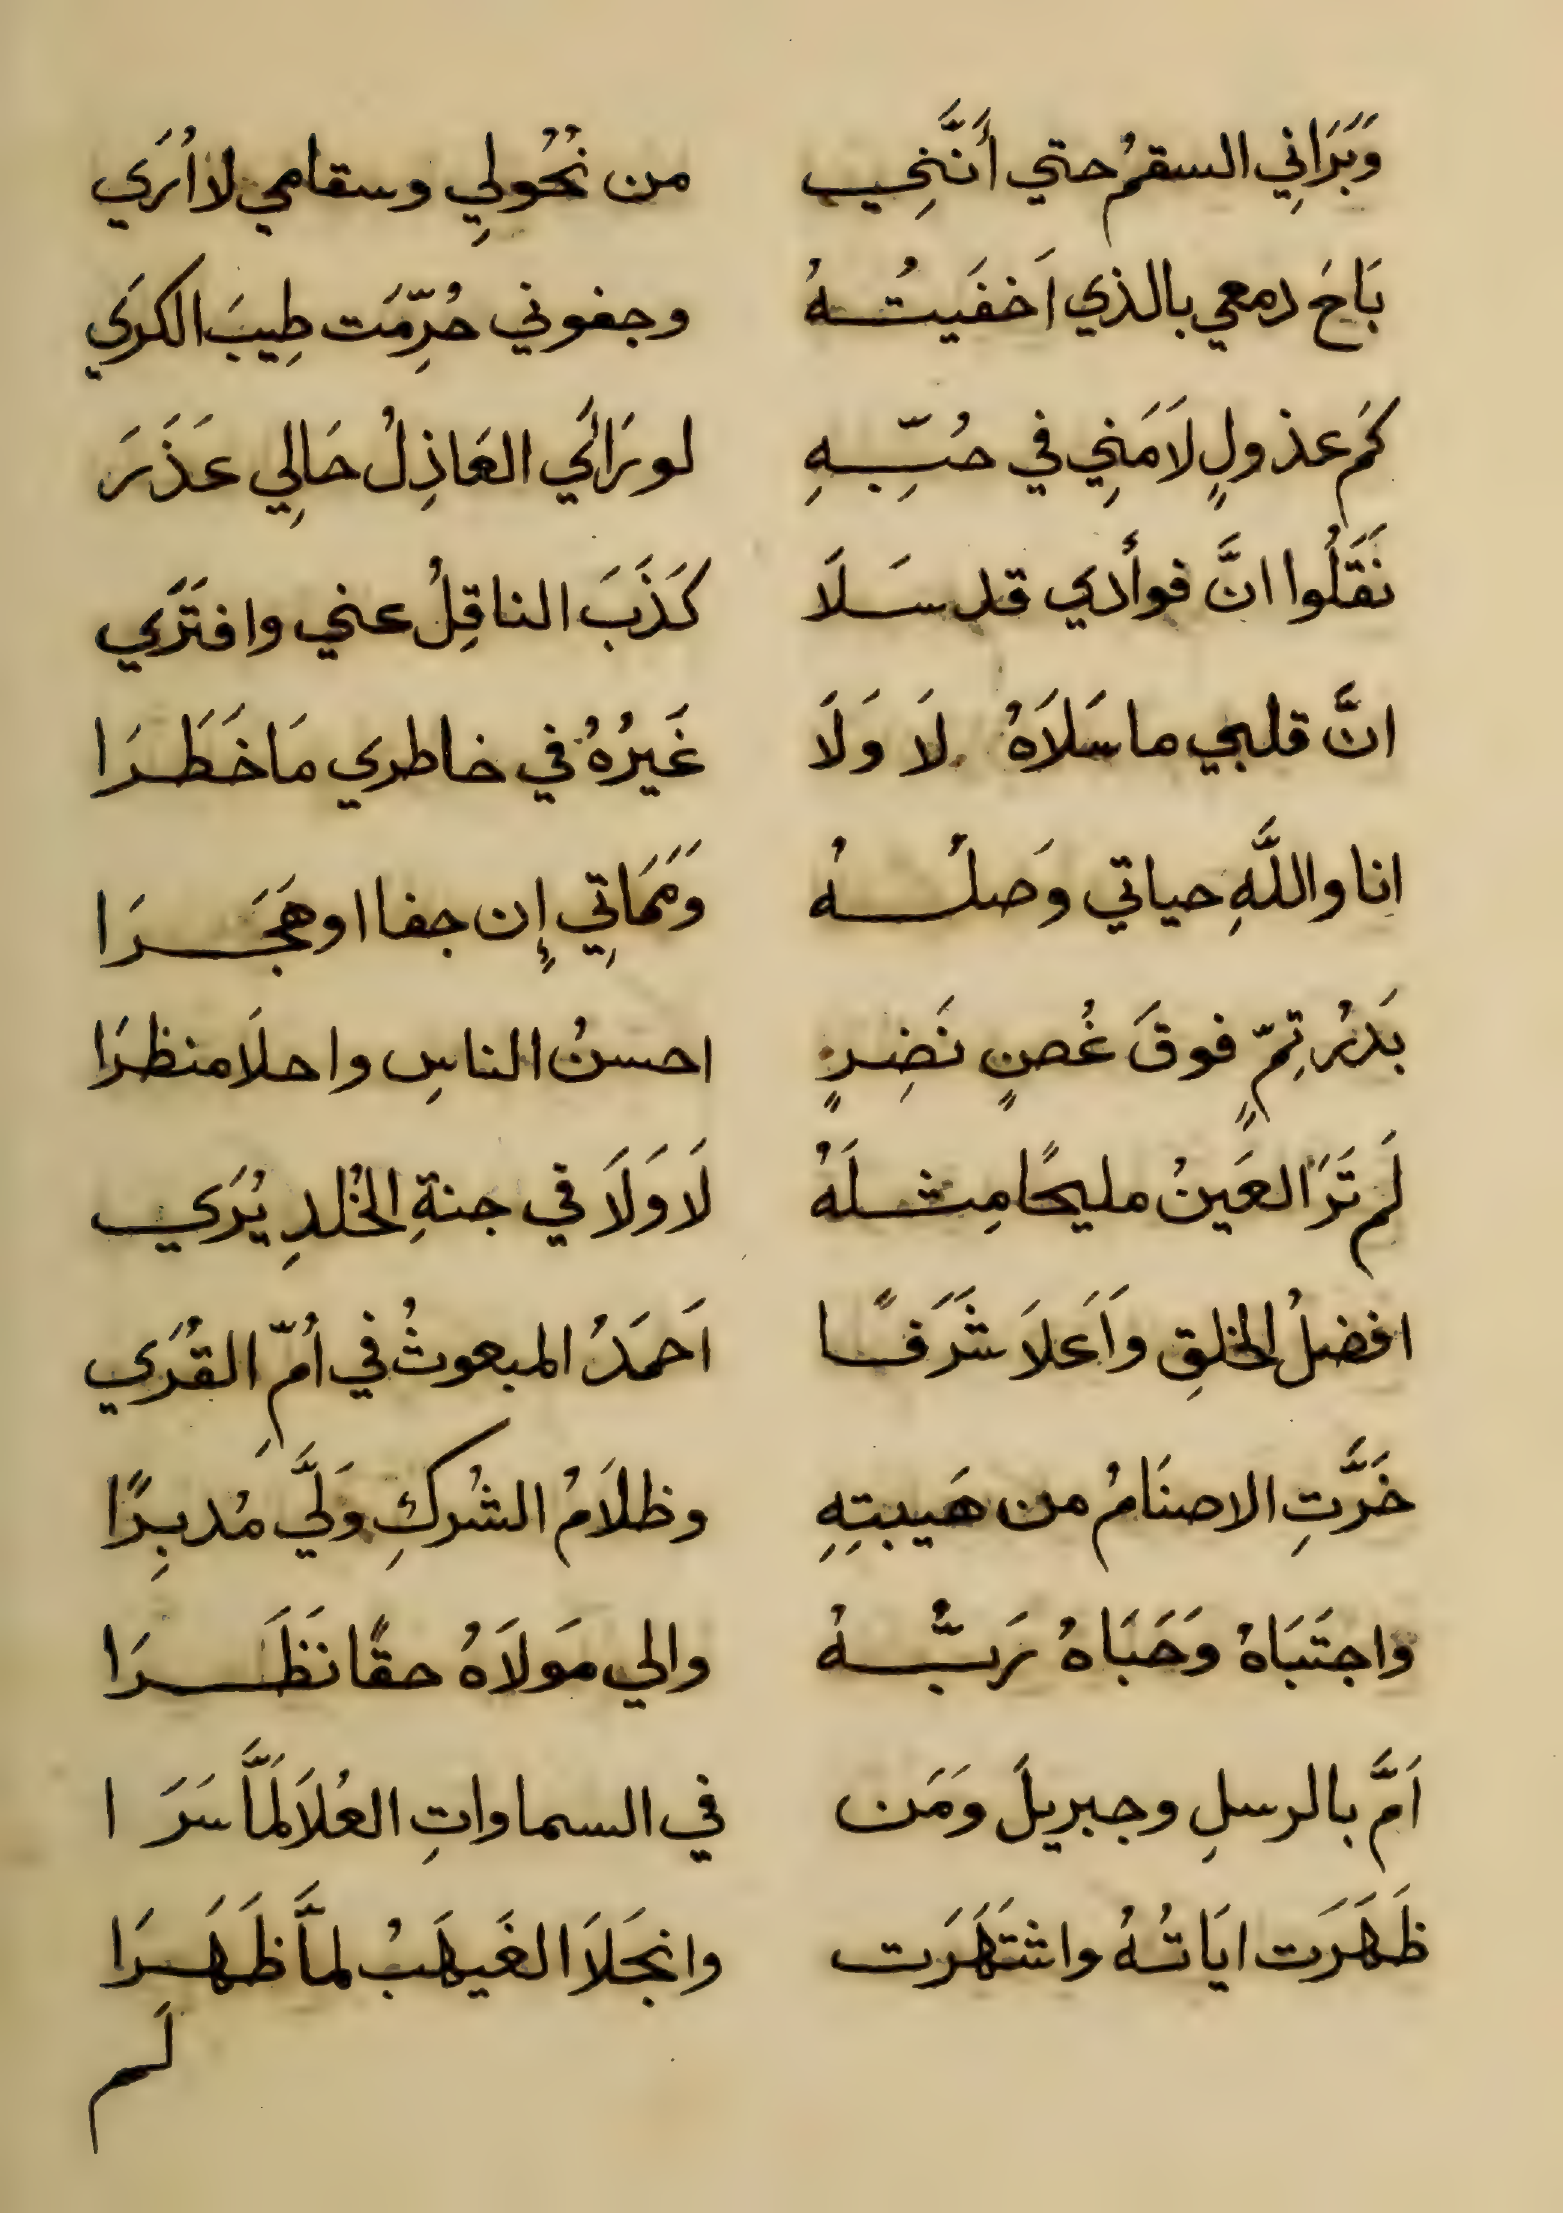 وَبَرَانِي السقمُ حتي أَنَّنِي من نُحُولِي وسقامي لا اُرَي
بَاحَ دمعي بالذي اَخفَيتُهُ وجفوني حُرِّمَت طِيبَ الكرَي
كَم عذولٍ لَامَنِي في حُبِّهِ لو رَاَي العَاذِلُ حَالِي عَذَرَ
نَقَلُوا انَّ فوأدي قد سَلَا كَذَبَ الناقِلُ عني وافتَرَي
انَّ قلبي ما سَلَاهُ لَا وَلَا غَيرُهُ في خاطري مَا خَطَرَا
انا واللَّهِ حياتي وَصلُهُ وَمَمَاتِي إِن جفا او هَجَرَا
بَدرُ تِمٍّ فوقَ غُصنٍ نَضِرٍ احسنُ الناسِ واحلَا منظرَا
لَم تَرَ العَينُ مليحًا مِثلَهُ لَا وَلَا في جنةِ الخُلدِ يُرَي
افضلُ الخلقِ واَعلَا شَرَفًا اَحمَدُ المبعوثُ في اُمِّ القُرَي
خَرَّتِ الاصنَامُ من هَيبتِهِ وظلَامُ الشركِ وَلَّي مُدبِرًا
واجتَبَاهُ وَحَبَاهُ رَبُّهُ والي مَولَاهُ حقًا نَظَرَا
اَمَّ بالرسلِ وجبريلَ وَمَن في السماواتِ العُلَا لَمَّا سَرَا
ظَهَرَت ايَاتُهُ واشتَهَرَت وانجَلَا الغَيهَبُ لمَّا ظَهَرَا
لَم